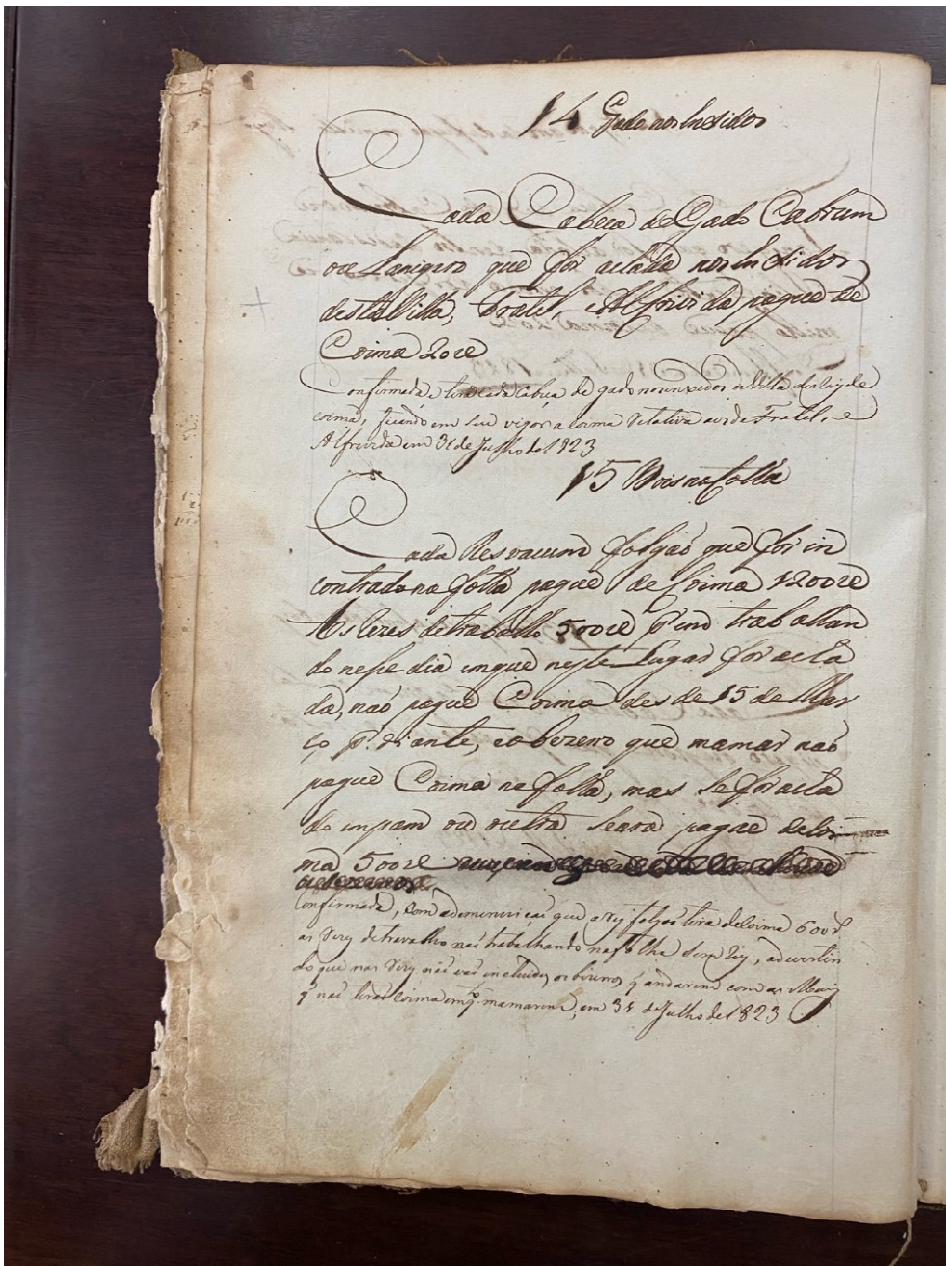 14 Gado nos Inxidos
Cada Cabeca de Gado Cabrum
ou Lanigero que for actado nos In xidos
desta Villa, Fratel, e Alfrivida pague de
Coima 20 re
Confirmada e terá cada Cabeca de gado nos inxidos da Villa des Reis de
coima, ficando em seu vigor a coima relativa aos de Fratel, e
Alfrivida em 31 de Julho de 1823
15 Bois na folha
Cada Res vacum folgaó que for in
contrado na folha pague de Coima 1200 re
As Rezes de traballo 500 re tr aballan
do nesse dia em que neste Lugar for acta
da, naó pague Coima des de 15 de Mar
ço p.r diante, eo bezerro que mamar naó
pague Coima na folha, mas se for acta
do em pam ou seara pague de Coi
ma 500 re
Confirmada, com ademinuicaó que a Rez folgaó terá de Coima 600 r.s
as Rezes de travalho naó trabalhando na folha Reis, advertin
do que nas Rezes naó vaó incluidos os bizerros q andarem com as Mains
q naó teraó Coima emq.to mamarem, em 31 de Julho de 1823